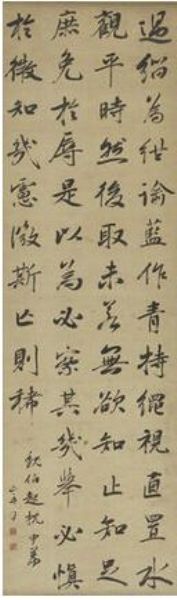 過緇為紺諭藍作青持繩視直置水
觀平時然後取未若無欲知止知足
庶免於辱是以為必察其幾舉必慎
於微知幾慮微斯亡則稀
錄伯起枕中篇